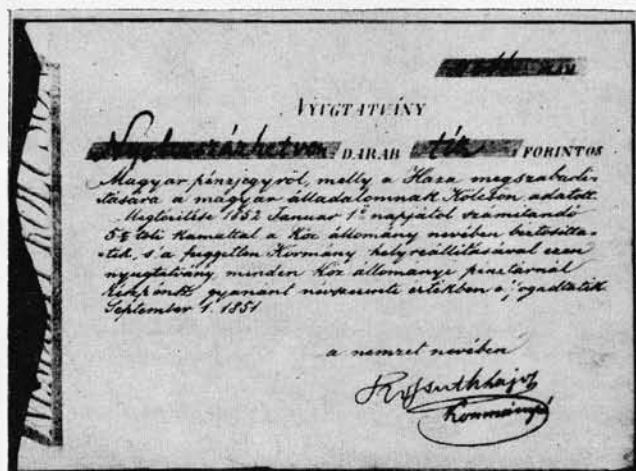 NYUGTATVÁNY
Nyolczszázhetven DARAB tíz FORINTOS
Magyar pénzjegyről, melly a Haza megszabadi-
tására a magyar álladalomnak Kölcsön adatott.
Megtérítése 1852 Januar 1ő napjától számítandó
5% toli kamattal a Köz állomány nevében biztositta-
tik, s a független Kormány helyreállításával ezen
nyugtatvány minden Köz állományi pénztárnál
készpénz gyanánt névszerinti értékben elfogadtatik
September 1. 1851
a nemzet nevében
Kossuth Lajos
Kormányzó